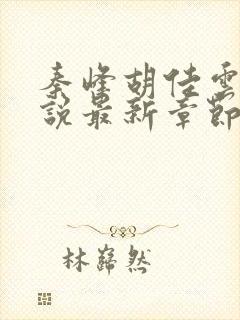 秦峰胡佳雲
說最新章節
林巋然